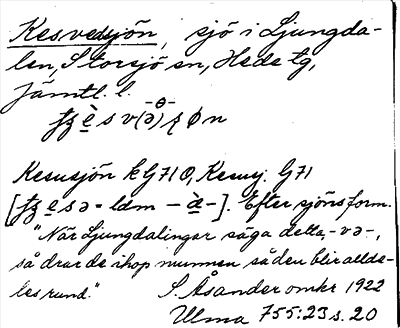 Kesvesjön, sjö i Ljungda-
len, Storsjö sn, Hede tg,
Jämtl. l.
Kesusjön kG71Ö, Kesusj. G71
Efter sjöns form.
"När Ljungdalingar säga detta -və-,
så drar de ihop munnen så den blir allde-
les rund."
S. Åsander omkr 1922
Ulma 755:23 s. 20